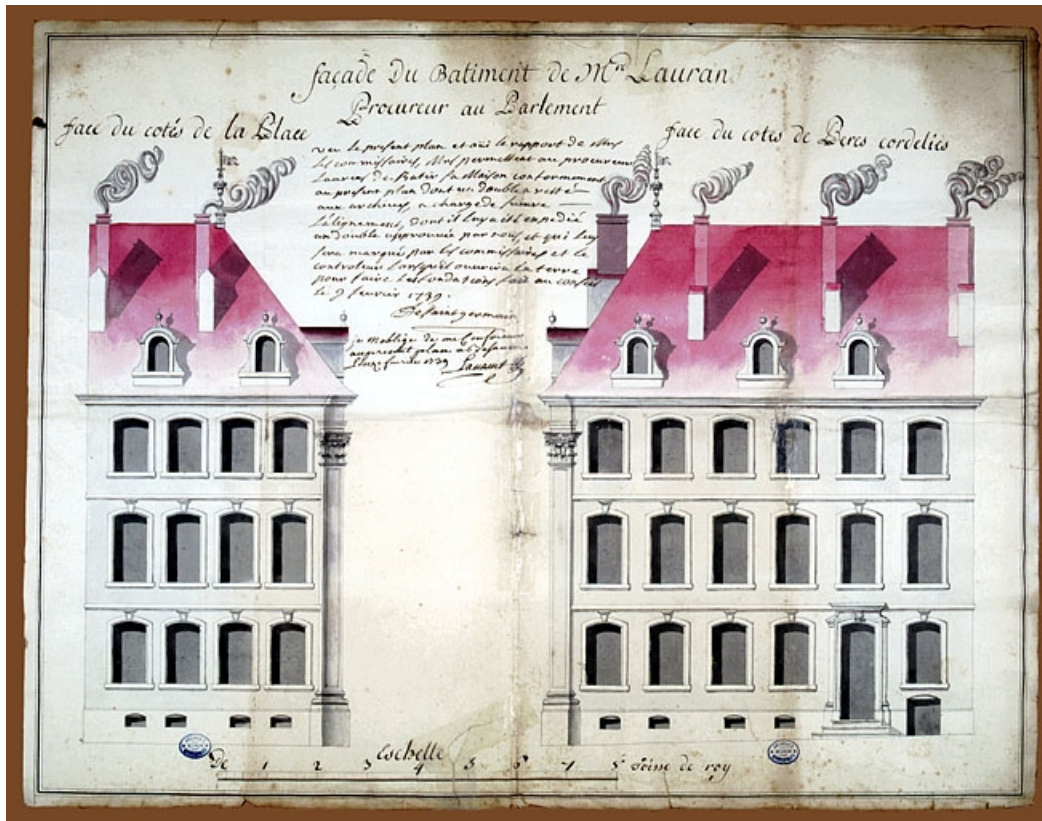 façade Du Batiment de Mr. Lauran
Procureur au Parlement
face du cotés de la Place
face du cotes de Peres cordeliés
veu le present plan et oüi le rapport de Mrs
les commissaires, Mrs permettent au procureur
Laurans de Batir sa Maison conformement
au present plan dont un double a resté
aux archives, a charge de suivre
L'alignement, dont il luy a été expedié
un double approuvé par nous, et qui luy
sera marqué par les commissaires et le
controleur Lorsqu'il ouvrira la terre
pour faire les fondations fait au conseil
le 9 fevrier 1739.
De saint germain
je m'oblige de me Conformer
au present plan a
fevrier 1739 Laurant
Eschelle
De 1 2 3 4 5 6 7 8 Toise de roy